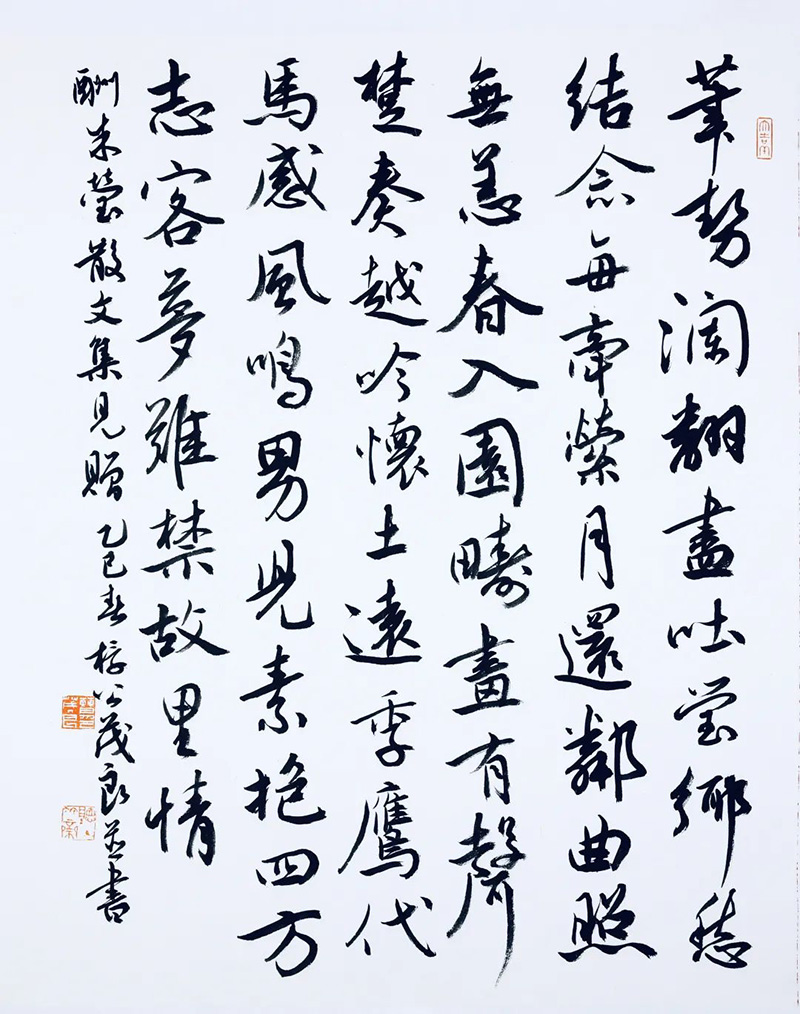 筆勢瀾翻盡吐瑩鄉愁
結念每牽縈月還鄰曲照
無恙春入園疇畫有聲
楚奏越吟懷土遠季鷹代
馬感風鳴男兒素抱四方
志客夢難禁故里情
酬朱瑩散文集見贈 乙巳春 公茂良並書